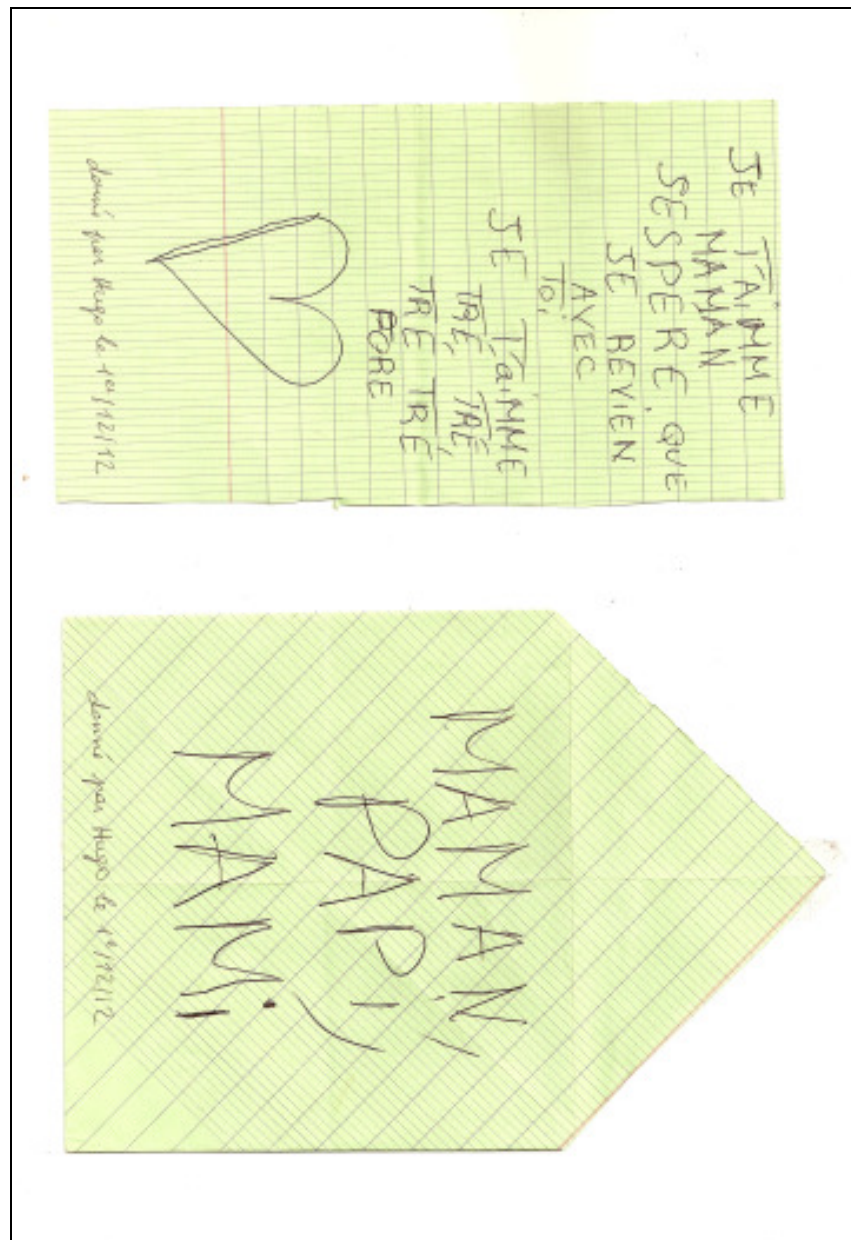 JE T'AiMME
MAMAN
SESPERE QUE
JE REVIEN
AVEC
TOi
JE T'aiMME
TRÉ, TRÉ,
TRE TRÉ
FORE
donné par Hugo le 1er/12/12
MAMAN,
PAPI,
MAMi
donné par Hugo le 1er/12/12